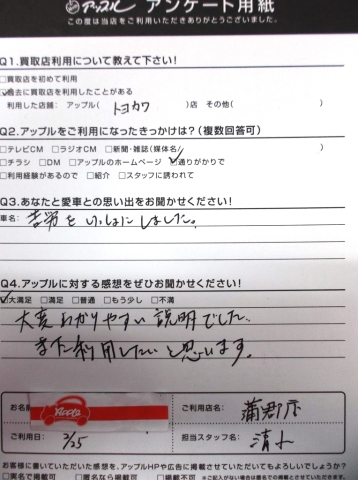 アップル アンケート用紙
この度は当店をご利用いただきありがとうございました。
Q1.買取店利用について教えて下さい!
□買取店を初めて利用
☑過去に買取店を利用したことがある
利用した店舗: アップル( トヨカワ )店 その他( )
Q2.アップルをご利用になったきっかけは?(複数回答可)
□テレビCM □ラジオCM □新聞・雑誌(媒体名 ) ☑通りがかりで
□チラシ □DM □アップルのホームページ
□利用経験があるので □紹介 □スタッフに誘われて
Q3.あなたと愛車との思い出をお聞かせください!
車名: 苦労をいっしょにしました。
Q4.アップルに対する感想をぜひお聞かせください!
☑大満足 □満足 □普通 □もう少し □不満
大変わかりやすい説明でした。
また利用したいと思います。
お名前 Apple
ご利用店名: 蒲郡店
ご利用日: 2/25
担当スタッフ名: 清水
お客様に書いていただいた感想を、アップルHPや広告に掲載させていただいてもよろしいでしょうか?
□実名で掲載可 □匿名なら掲載可 □掲載不可